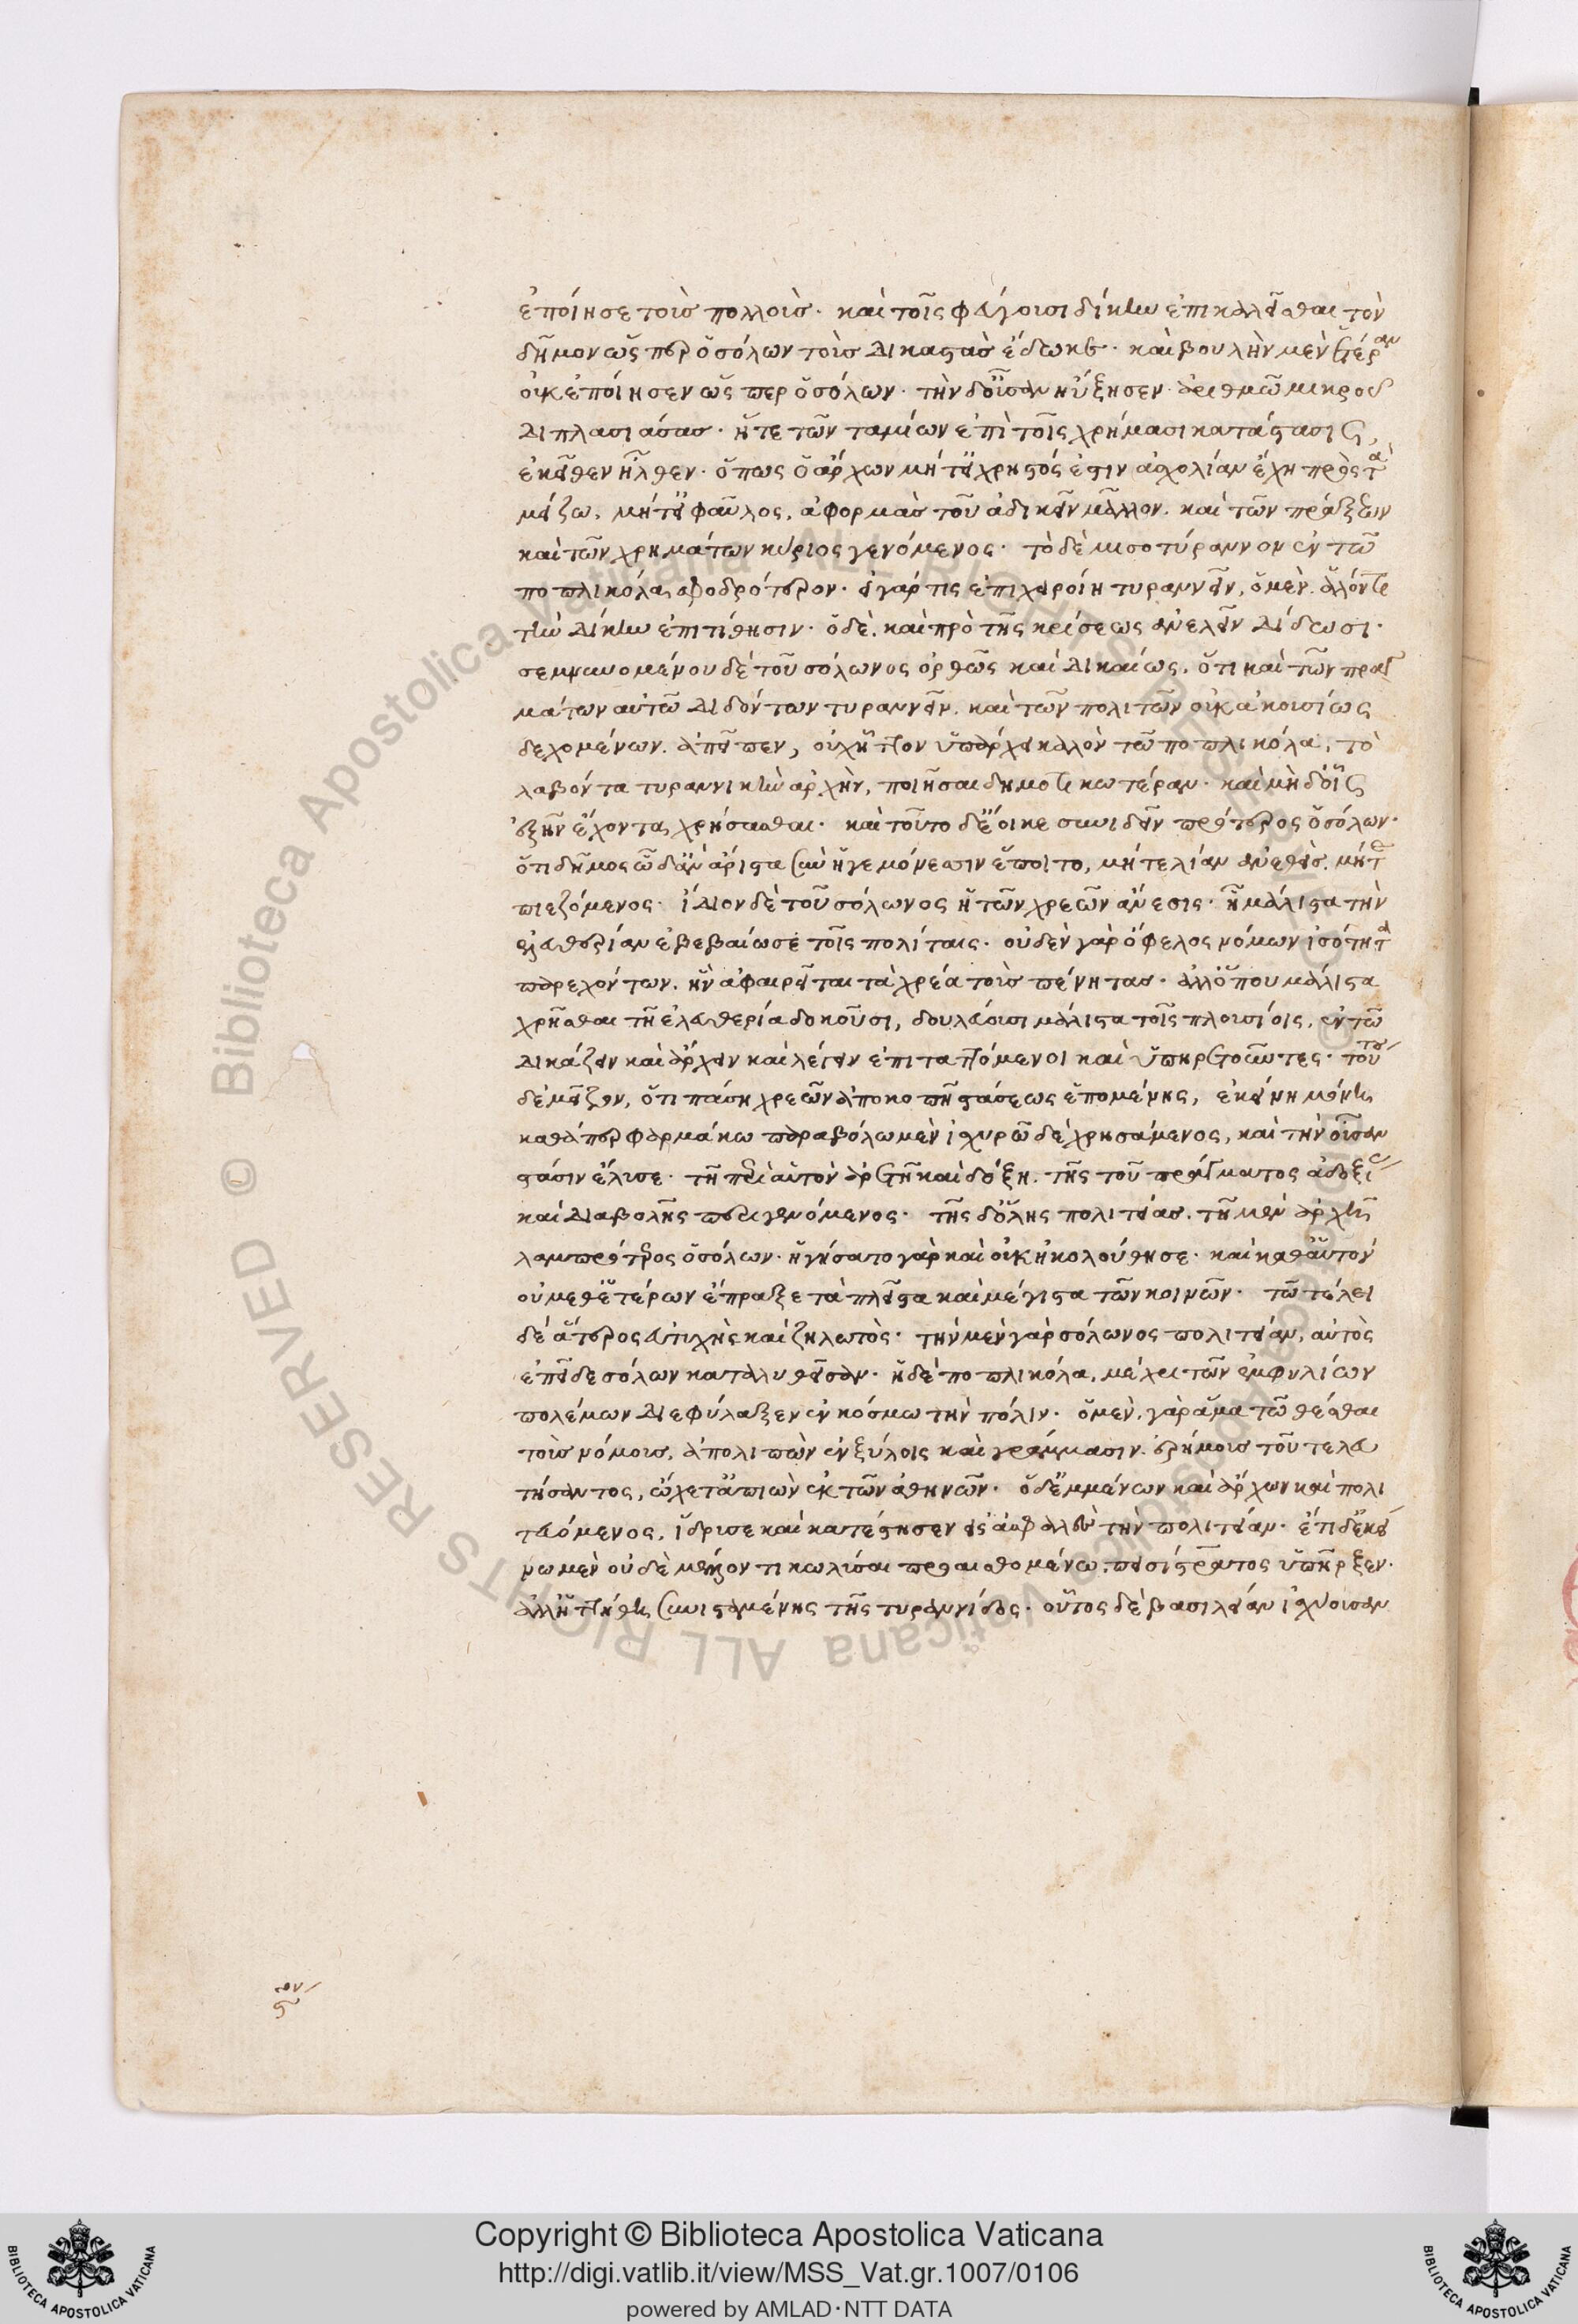 ἐποίησε τοὺσ πολλοὺσ· καὶ τοῖς φεύγουσι δίκην ἐπικαλεῖσθαι τὸν
δῆμον ὥσπερ ὁ σόλων τοὺσ δικαστὰσ ἔδωκε· καὶ βουλὴν μὲν ἑτέραν
οὐκ ἐποίησεν ὥσπερ ὁ σόλων· τὴν δ' οὖσαν ηὔξησεν ἀριθμῶ μικροῦ
διπλασιάσασ· ἥ τε τῶν ταμιῶν ἐπὶ τοῖς χρήμασι κατάστασις,
ἐκεῖθεν ἦλθεν· ὅπως ὁ ἄρχων μήτ' εἰ χρηστός ἐστιν ἀσχολίαν ἔχη πρὸς τὰ
μείζω, μήτ' εἰ φαῦλος, ἀφορμὰσ τοῦ ἀδικεῖν μᾶλλον. καὶ τῶν πράξεων
καὶ τῶν χρημάτων κύριος γενόμενος· τὸ δὲ μισοτύραννον ἐν τῶ
ποπλικόλα, σφοδρότερον· εἰ γάρ τις ἐπιχειροίη τυραννεῖν, ὁ μὲν ἁλόντι
τὴν δίκην ἐπιτίθησιν· ὁ δὲ, καὶ πρὸ τῆς κρίσεως ἀνελεῖν δίδωσι·
σεμνυνομένου δὲ τοῦ σόλωνος ὀρθῶς καὶ δικαίως, ὅτι καὶ τῶν πραγ
μάτων αὐτῶ διδόντων τυραννεῖν, καὶ τῶν πολιτῶν οὐκ ἀκουσίως
δεχομένων. ἀπεῖπεν, οὐχ ἧττον ὑπάρχει καλὸν τῶ ποπλικόλα, τὸ
λαβόντα τυραννικὴν ἀρχὴν, ποιῆσαι δημοτικωτέραν· καὶ μὴ δ' οἷς
ἐξῆν ἔχοντα, χρήσασθαι· καὶ τοῦτο δ' ἔοικε συνιδεῖν πρότερος ὁ σόλων·
ὅτι δῆμος ὧδ' ἂν ἄριστα σὺν ἡγεμόνεσσιν ἕποιτο, μήτε λίαν ἀνεθεὶσ, μήτε
πιεζόμενος· ἴδιον δὲ τοῦ σόλωνος ἡ τῶν χρεῶν ἄνεσις· ἧ μάλιστα τὴν
ἐλευθερίαν ἐβεβαίωσε τοῖς πολίταις· οὐδὲν γὰρ ὄφελος νόμων ἰσότητα
παρεχόντων, ἣν ἀφαιρεῖται τὰ χρέα τοὺσ πένητασ· ἀλλ' ὅπου μάλιστα
χρῆσθαι τῆ ἐλευθερία δοκοῦσι, δουλεύουσι μάλιστα τοῖς πλουσίοις, ἐν τῶ
δικάζειν καὶ ἄρχειν καὶ λέγειν ἐπιταττόμενοι καὶ ὑπηρετοῦντες· τούτου
δὲ μεῖζον, ὅτι πάση χρεῶν ἀποκοπῆ στάσεως ἑπομένης, ἐκείνη μόνη
καθάπερ φαρμάκω παραβόλω μὲν ἰσχυρῶ δὲ χρησάμενος, καὶ τὴν οὖσαν
στάσιν ἔλυσε· τῆ περὶ αὐτὸν ἀρετῆ καὶ δόξη. τῆς τοῦ πράγματος ἀδοξίας
καὶ διαβολῆς περιγενόμενος· τῆς δ' ὅλης πολιτείασ, τῆ μὲν ἀρχῆ
λαμπρότερος ὁ σόλων· ἡγήσατο γὰρ καὶ οὐκ ἠκολούθησε· καὶ καθ' αὑτὸν
οὐ μεθ' ἑτέρων ἔπραξε τὰ πλεῖστα καὶ μέγιστα τῶν κοινῶν· τῶ τέλει
δὲ ἅτερος εὐτυχὴς καὶ ζηλωτὸς· τὴν μὲν γὰρ σόλωνος πολιτείαν, αὐτὸς
ἐπεῖδε σόλων καταλυθεῖσαν· ἡ δὲ ποπλικόλα, μέχρι τῶν ἐμφυλίων
πολέμων διεφύλαξεν ἐν κόσμω τὴν πόλιν· ὁ μὲν, γὰρ ἅμα τῶ θέσθαι
τοὺσ νόμους, ἀπολιπὼν ἐν ξύλοις καὶ γράμμασιν. ἐρήμουσ τοῦ τελευ
τήσαντος, ὤχετ' ἀπιὼν ἐκ τῶν ἀθηνῶν· ὁ δ' ἐμμένων καὶ ἄρχων καὶ πολι
τευόμενος, ἵδρυσε καὶ κατέστησεν εἰς ἀσφαλὲς τὴν πολιτείαν· ἔτι δ' ἐκεί
νω μὲν οὐδὲ μέλλον τι κωλῦσαι προαισθομένω. πεισίστρατος ὑπῆρξεν.
ἀλλ' ἡττήθη συνισταμένης τῆς τυραννίδος· οὗτος δὲ βασιλείαν ἰσχύουσαν